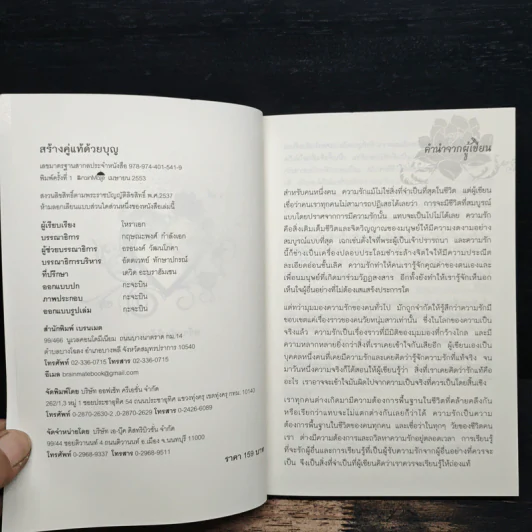 สร้างคู่แท้ด้วยบุญ
เลขมาตรฐานสากลประจำหนังสือ 978-974-401-541-9
พิมพ์ครั้งที่ 1 เมษายน 2553
สงวนลิขสิทธิ์ตามพระราชบัญญัติลิขสิทธิ์ พ.ศ.2537
ห้ามลอกเลียนแบบส่วนใดส่วนหนึ่งของหนังสือเล่มนี้
ผู้เรียบเรียง โหราเอก
บรรณาธิการ กฤษณะพงศ์ กำลังเอก
ผู้ช่วยบรรณาธิการ อรอนงค์ วัฒนโภคา
บรรณาธิการบริหาร อัตตเทยท์ ทักษาปกรณ์
ที่ปรึกษา เดวิด ธะนราสัมเชน
ออกแบบปก กะจะปัน
ภาพประกอบ กะจะปัน
ออกแบบรูปเล่ม กะจะปัน
สำนักพิมพ์ เบรนเมต
99/466 นูเวลคอนโดมิเนียม ถนนบางนาตราด กม.14
ตำบลบางโฉลง อำเภอบางพลี จังหวัดสมุทรปราการ 10540
โทรศัพท์ 02-336-0715 โทรสาร 02-336-0715
อีเมล brainmatebook@gmail.com
จัดพิมพ์โดย บริษัท ออฟเซ็ท ครีเอชั่น จำกัด
262/1.3 หมู่ 1 ซอยประชาอุทิศ 54 ถนนประชาอุทิศ แขวงทุ่งครุ เขตทุ่งครุ กทม. 10140
โทรศัพท์ 0-2870-2630-2 ,0-2870-2629 โทรสาร 0-2426-6089
จัดจำหน่ายโดย บริษัท เอ-บุ๊ค ดิสทริบิวชั่น จำกัด
99/44 ซอยติวานนท์ 4 ถนนติวานนท์ อ.เมือง จ.นนทบุรี 11000
โทรศัพท์ 0-2968-9337 โทรสาร 0-2968-9511
ราคา 159 บาท
คำนำจากผู้เขียน
สำหรับคนหนึ่งคน ความรักแม้ไม่ใช่สิ่งที่จำเป็นที่สุดในชีวิต แต่ผู้เขียน
เชื่อว่าคนเราทุกคนไม่สามารถปฏิเสธได้เลยว่า การจะมีชีวิตที่สมบูรณ์
แบบโดยปราศจากการมีความรักนั้น แทบจะเป็นไปไม่ได้เลย ความรัก
คือสิ่งเติมเต็มชีวิตและจิตวิญญาณของมนุษย์ให้มีความงดงามอย่าง
สมบูรณ์แบบที่สุด เฉกเช่นดั่งใจที่พระผู้เป็นเจ้าปรารถนา และความรัก
นี้ก็ช่างเป็นเครื่องปลอบประโลมชำระล้างจิตใจให้มีความประณีต
ละเอียดอ่อนขึ้นเสีย ความรักทำให้คนเรารู้จักคุณค่าของตนเองและ
เพื่อนมนุษย์ที่เกิดมาร่วมวัฏฏสงสาร อีกทั้งยังทำให้เรารู้จักเห็นอก
เห็นใจผู้อื่นอย่างที่ไม่ต้องแสแสร้งประการใด
แต่ทว่ามุมมองของความรักของคนทั่วไป มักถูกจำกัดให้รู้สึกว่าความรักมี
ขอบเขตแค่เรื่องราวของคนวัยหนุ่มสาวเท่านั้น ซึ่งในโลกของความเป็น
จริงแล้ว ความรักเป็นเรื่องราวที่มีมิติของมุมมองที่กว้างไกล และมี
ความหลากหลายยิ่งกว่าสิ่งที่เราเคยเข้าใจกันเสียอีก ผู้เขียนเองเป็น
บุคคลหนึ่งคนที่เคยมีความรักและเคยคิดว่ารู้จักความรักที่แท้จริง จน
มาวันหนึ่งความจริงก็ได้สอนให้ผู้เขียนรู้ว่า สิ่งที่เราเคยคิดว่ารักแท้คือ
อะไร เราอาจจะเข้าใจมันผิดไปจากความเป็นจริงที่ควรเป็นโดยสิ้นเชิง
เราทุกคนต่างเกิดมามีความต้องการพื้นฐานในชีวิตที่คล้ายคลึงกัน
หรือเรียกว่าแทบจะไม่แตกต่างกันเลยก็ว่าได้ ความรักเป็นความ
ต้องการพื้นฐานในชีวิตของคนทุกคน และเชื่อว่าในทุกๆ วัยของชีวิตคน
เรา ต่างมีความต้องการและถวิลหาความรักอยู่ตลอดเวลา การเรียนรู้
ที่จะรักผู้อื่นและการเรียนรู้ที่เป็นผู้รับความรักจากผู้อื่นอย่างที่ควรจะ
เป็น จึงเป็นสิ่งที่จำเป็นที่ผู้เขียนคิดว่าเราควรจะเรียนรู้ให้ถ่องแท้